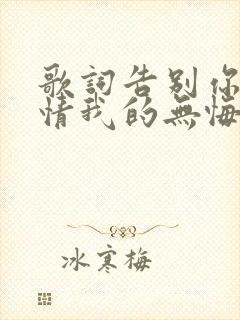 歌詞告别你
情我的無悔
冰寒梅